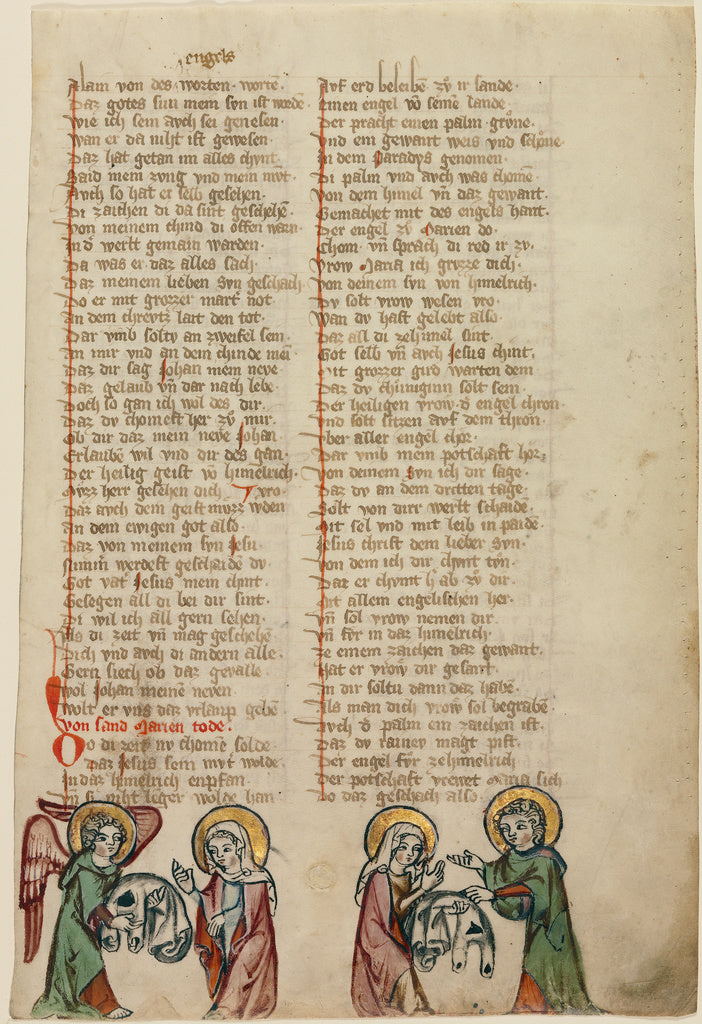 engels
Alain von des worten worte.
Daz gotes sun mein syn ist worde
Wie ich sein auch sei genesen.
Wan er da niht ist gewesen.
Daz hat getan im alles chunt.
Said mein zung und mein mvt.
Auch so hat er selb gesehen.
Di zaichen di da sint geschehē.
Von meinem chind di offen warn
In d̄ werlt gemain warden.
Da was er daz alles sach.
Daz meinem lieben syn geschach
Do er mit grozzer mart not.
An dem chrevtz lait den tot.
Dar vmb soltv an zweifel sein.
An mir vnd an dem chinde mei
Daz dir sag Johan mein neve
Daz gelaub vn̄ dar nach lebe.
Doch so gan ich wol des dir.
Daz dv chomest her zv mir.
Ob dir daz mein neve Johan.
Erlaubē wil vnd dir des gan.
Der heilig geist vō himelrich.
herr gesehen dich
Daz auch dem geist mvzz wden
An dem ewigen got also.
Daz von meinem syn Jesu.
Nimm werdest geschaidē dv
Got vat̄ Jesus mein chint.
Gesegen all di bei dir sint.
Di wil ich all gern sehen.
Als di zeit vn̄ mag geschehē
Dich vnd auch di andern alle.
Gern siech ob daz gevalle.
Wol Johan meinē neven
Wolt er vns daz vrlaup gebē
Von sand Marien tode.
Do di zeit nv chomē solde
Daz Jesus sein mvt̄ wolde.
In daz himelrich enpfan.
Vn̄ si niht leger wolde han
Avf erd beleibē zv̊ ir sande
Einen engel vō seinē lande.
Der pracht einen palm grv̊ne.
Vnd ein gewant weis vnd schône
In dem Paradys genomen.
Di palm vnd auch was chomē
Von dem himel vn̄ daz gewant.
Gemachet mit des engels hant.
Der engel zv̊ Marien do.
Chom vn̄ sprach di red ir zv.
Vrow Maria ich grvzze dich.
Von deinem syn von himelrich.
Dv solt vrow wesen vro.
Wan dv hast gelebt also.
Daz all di ze himel sint.
Got selb vn̄ auch Jesus chint.
Mit grozzer gird warten dein
Daz dv chuniginn solt sein.
Der heiligen vrow d̄ engel chron
Vnd solt sitzen avf dem thron.
Vber aller engel chor.
Dar vmb mein potschaft hôr.
Von deinem syn ich dir sage.
Daz dv an dem dritten tage.
Solt von dirr werlt schaide.
Mit sel vnd mit leib in paide.
Jesus christ dem lieber syn.
Von dem ich dir chunt tv̊n.
Daz er chvmt h̄ ab zv̊ dir.
Mit allem engelischen her.
Vn̄ sol vrow nemen dir
Vn̄ fv̊r in daz himelrich.
Ze einem zaichen daz gewant.
Hat er vrow dir gesant.
In dir soltu dann daz habē.
Als man dich vrow sol begrabē
Auch d̄ palm ein zaichen ist.
Daz dv rainev magt pist.
Der engel fv̊r ze himelrich
Der potschaft vrewet Maria sich
Do daz geschach also.